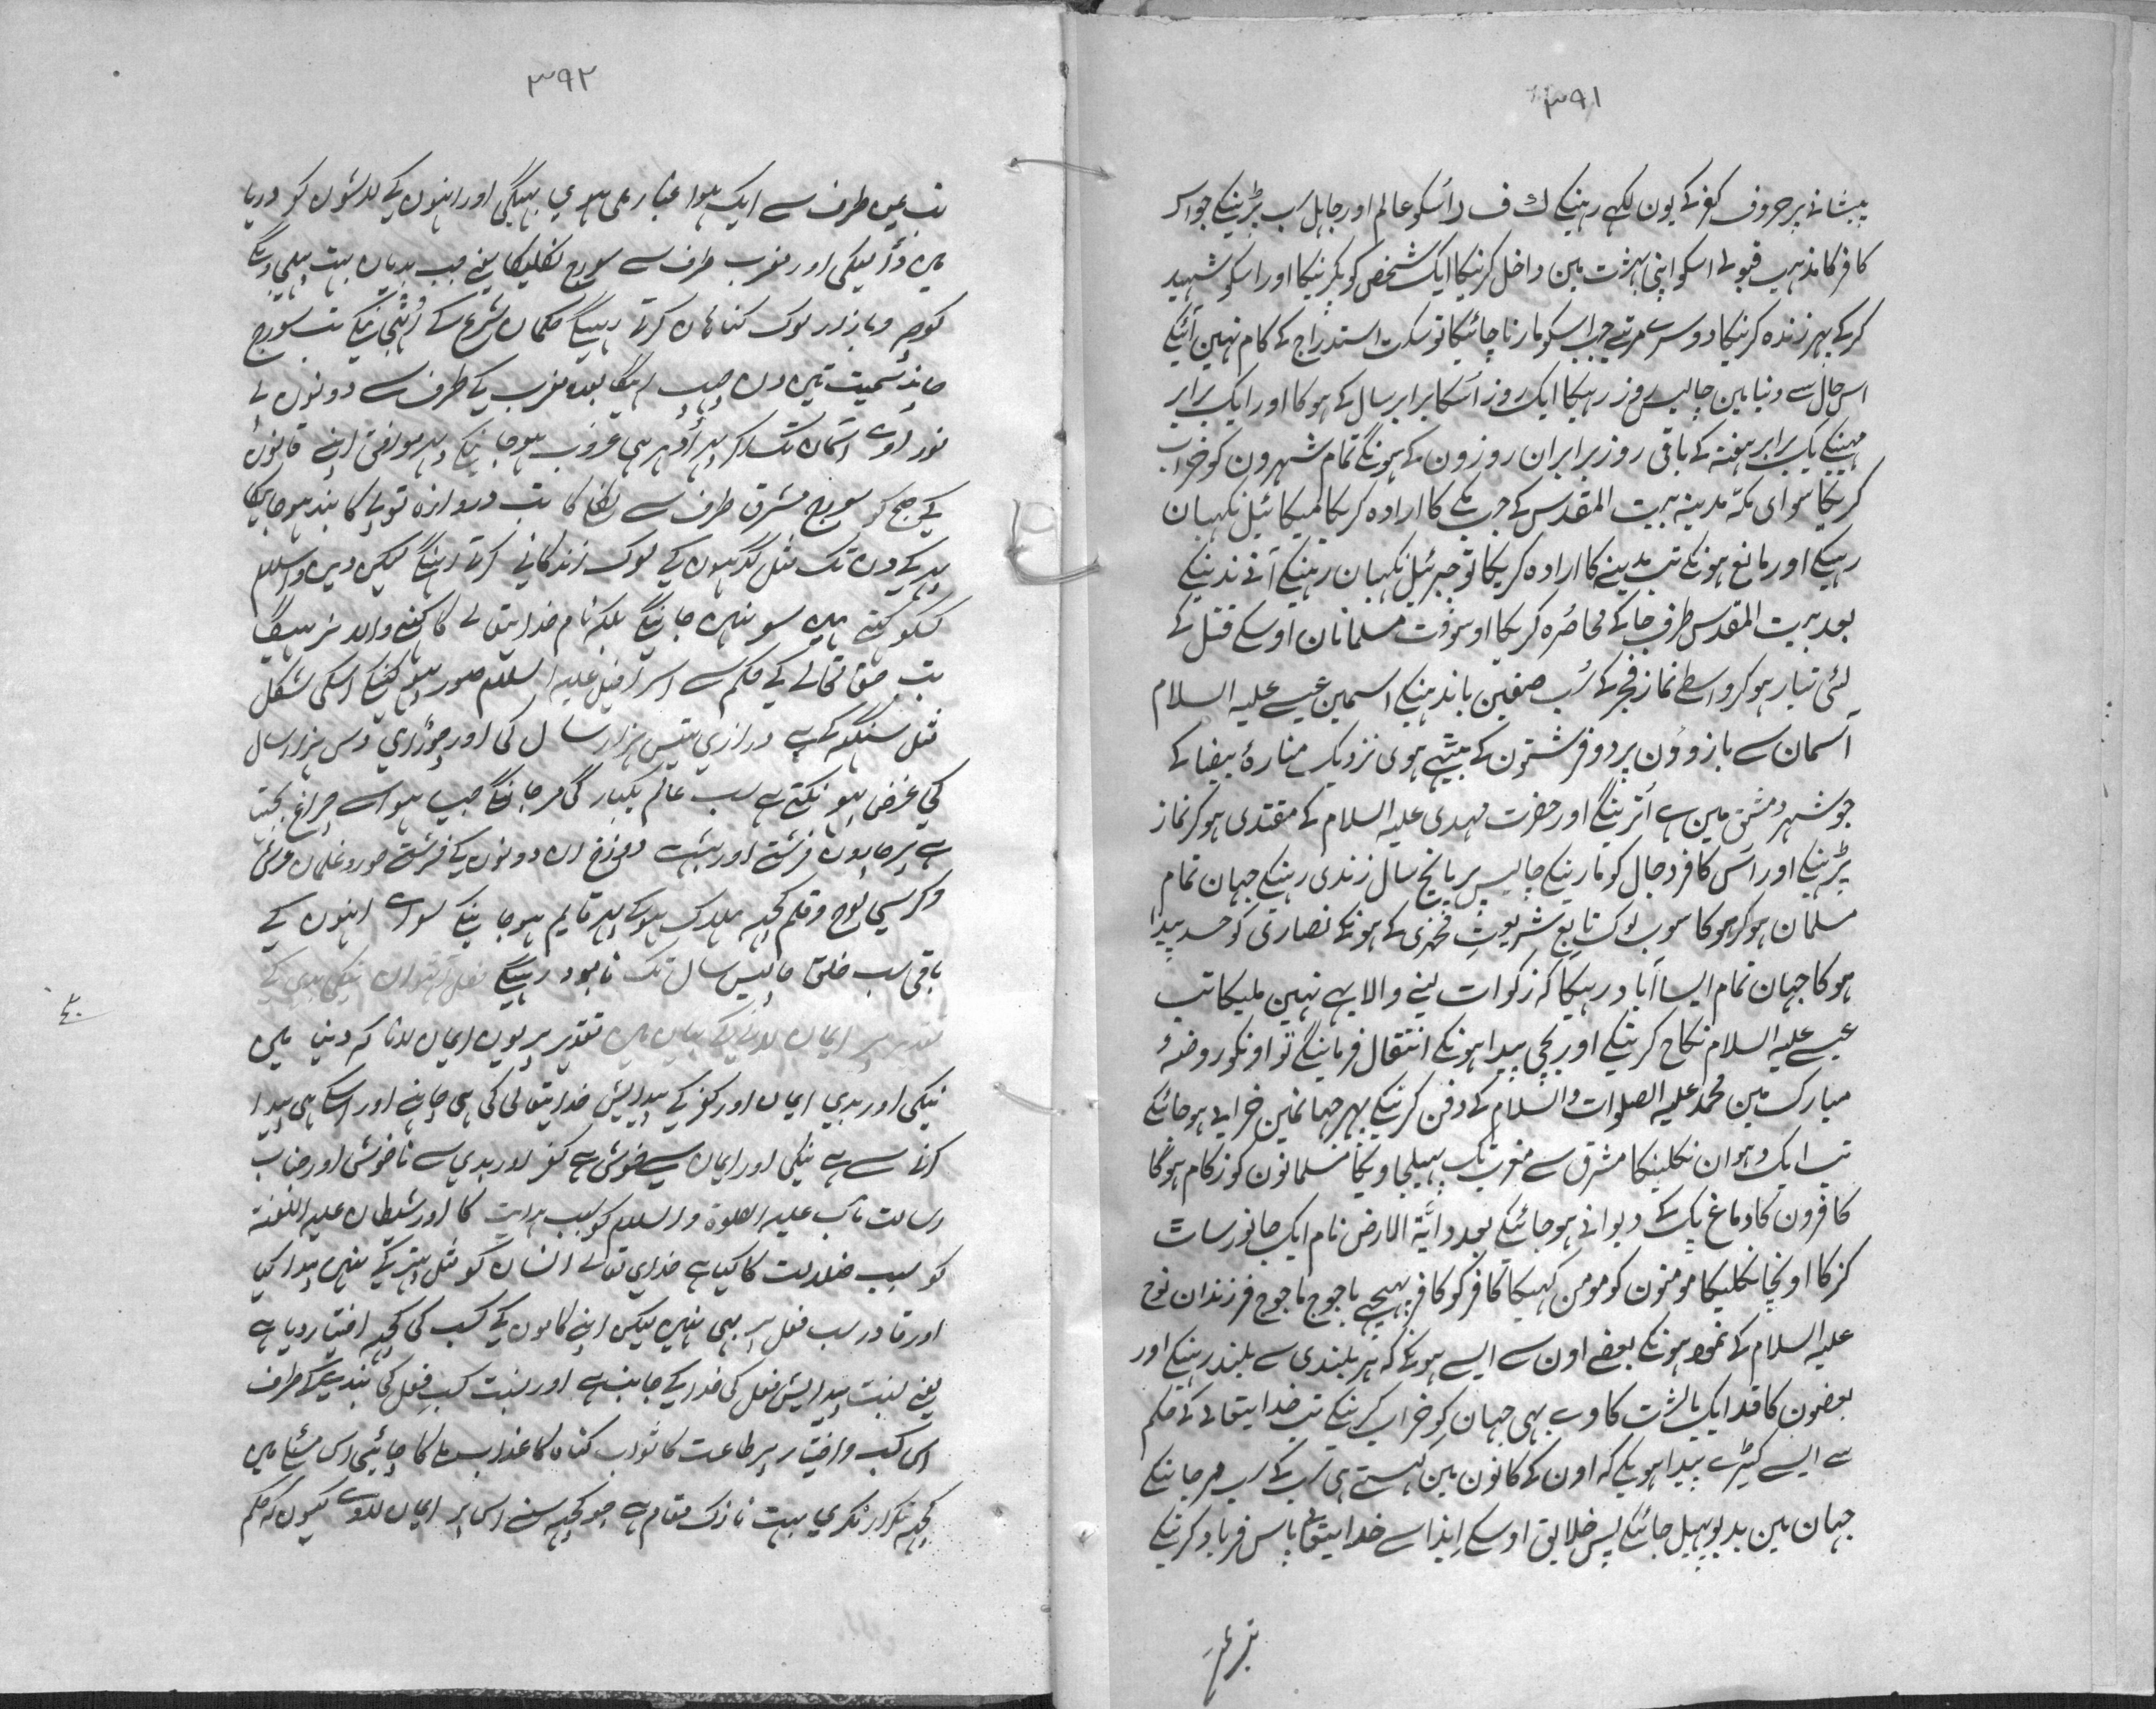 ۳۹۱
پیشانے پر حروف کفر کے یون لکھے رہینگے ك ف ر اُسکو عالم اور جاہل سب پڑہینگے جو اس
کافر کا مذہب قبولے اسکو اپنی بہژت مین داخل کرنیکا ایک شخص کو پکڑنیکا اور اسکو شہید
کر کے پہر زندہ کرنیکا دوسرے مرتبے جب اسکو مارنا چائیکا تو سکت استدراج کے کام نہین آئیگے
اس حال سے دنیا مین چالیس روز رہیکا ایک روز اُسکا برابر سال کے ہوکا اور ایک برابر
مہینے یک برابر ہفتہ کے باقی روز برابر ان روزون کے ہونگے تمام شہرون کو خراب
کریگا سوای مکہ مدینہ بیت المقدس کے جب مکے کا ارادہ کریکا میکائیل نکہبان
رہیگے اور مانع ہونگے تب مدینے کا ارادہ کریکا تو جبرئیل نکہبان رہینگے آنے ندینگے
بعد بیت المقدس طرف جا کے محاصُرہ کریگا اوسوقت مسلمانان اوسکے قتل کے
لئی تیار ہو کر واسطے نماز فجر کے سُب صفین باندہینگے اسمین عیسے علیہ السلام
آسمان سے بازوؤن پر دو فرشتون کے بیٹہے ہوی نزدیک منارۂ بیضا کے
جو شہر دمشق مین ہے اُترینگے اور حضرت مہدی علیہ السلام کے مقتدی ہو کر نماز
پڑہینگے اور اُس کافر دجال کو مارینگے چالیس پر پانچ سال زندی رہینگے جہان تمام
مسلمان ہو کر ہوکا سوب لوک تابع شریعوثِ محمدی کے ہونگے نصاری کو حسد پیدا
ہوکا جہان تمام ایسا آباد رہیکا کہ زکوات لینے والا بہے نہین ملیکا تب
عیسے علیہ السلام نکاح کرینگے اور بچی پیدا ہونگے انتقال فرماینگے تو اونکو روضۂ
مبارک مین محمد علیہ الصلوات والسلام کے دفن کرینگے پہر جہا نمین خرابے ہو جائیگے
تب ایک دہوان نکلینکا مشرق سے مغرب تک پہیلجاویکا مسلمانون کو زکام ہوگا
کافرون کا دماغ پک کے دیوانے ہو جائیگے بعد دابّۃ الارض نام ایک جانور سات
کزکا اونچا نکلیکا مومنون کو مومن کہیکا کافر کو کافر پہیچے یاجوج ماجوج فرزندان نوح
علیہ السلام کے نمود ہونگے بعضے اون سے ایسے ہونگے کہ ہر بلندی سے بلند رہینگے اور
بعضون کا قد ایک بالشت کا وے بہی جہان کو خراب کرینگے تب خدایتعالے کے حکم
سے ایسے کیٹرے پیدا ہوینگے کہ اون کے کانون مین گہستے ہی سب کے سب مر جاینگے
جہان مین بدبو پہیل جائیگے پس خلایق اوسکے ایذا سے خدایتعالے پاس فریاد کرینگے
۳۹۲
تب طرف سے ایک ہوا غبار ملی ہوي بہیگی اور انہون کے لاشون کو دریا
مین ڈالیگی اور مغرب طرف سے سورج نکلیگا یعنے جب بدیان بہت پہلیجاوینگے
کوچہ و بازار لوک کناہان کرتے رہینگے حکمان شرع کے اُٹہجاینگے تب سورج
چاند سمیت تین دن چہپ رہیگا بعدہ مغرب کے طرف سے دونون بے
نور آدے آسمان تک آکر پہر اُودہر ہی غروب ہوجاینگے پہر موافق اپنے قانون
کے صبح کو سورج مشرق طرف سے نکلیگا تب دروازہ توبے کا بند ہو جایگا
پہر کے دن تک مثل گدہیون کے لوک زندگانی کرتے رہینگے لیکن دین و اسلام
کسکو کہتے ہین سو نہین جانینگے بلکہ نام خدایتعالے کا کہنے والا نرہیگا
تب حق تعالے کے حکم سے اسرافیل علیہ السلام صور پہونکینگے اسکی شکل
مثل سنگہ کے ہے درازی بتیس ہزار سال کی اور چوڑاي دس ہزار سال
کی غرض پہونکتے ہی سب عالم یکبارگی مر جاینگے جیب ہوا سے چراغ بجہتا
ہے پر چارون فرشتے اور بہشت دوزخ ان دونون کے فرشتے حور و غلمان عرش
و کرسی لوح و قلم کچہ ہلاک ہوکے پہر قایم ہوجاینگے سواے انہون کے
باقی سب خلق چالیس سال تک نابود رہیگے نیکی بدی کے
تقدیر پر ایمان لانے کے بیان مین تقدیر پر یون ایمان لانا کہ دنیا مین
نیکی اور بدی ایمان اور کفر کے پیدایش خدایتعالی کی ہی چاہنے اور اسکے ہی پیدا
کرنے سے ہے نیکی اور ایمان سے خوش ہے کفر اور بدی سے ناخوش اور جناب
رسالت مآب علیہ الصلوة والسلام کو سبب ہدایت کا اور شیطان علیہ اللعنة
کو سبب ضلالت کا کیا ہے خدای تعالے انسان کو مثل پتہر کے نہین پیدا کیا
اور قادر سب فعل پر بہی نہین لیکن اپنے کامون کے کسب کی کچہ اختیار دیا ہے
یعنے نسبت پیدایش فعل کی خدا کے جانب ہے اور نسبت کسب فعل کی بندے کے طرف
اس کسب و اختیار پر طاعت کا ثواب کناہ کا عذاب ملیگا چائیے اس مسئلے مین
کچہ تکرار نکرے بہت نازک مقام ہے جو کچہ سنے اس پر ایمان لاوے کیون کہ حکم